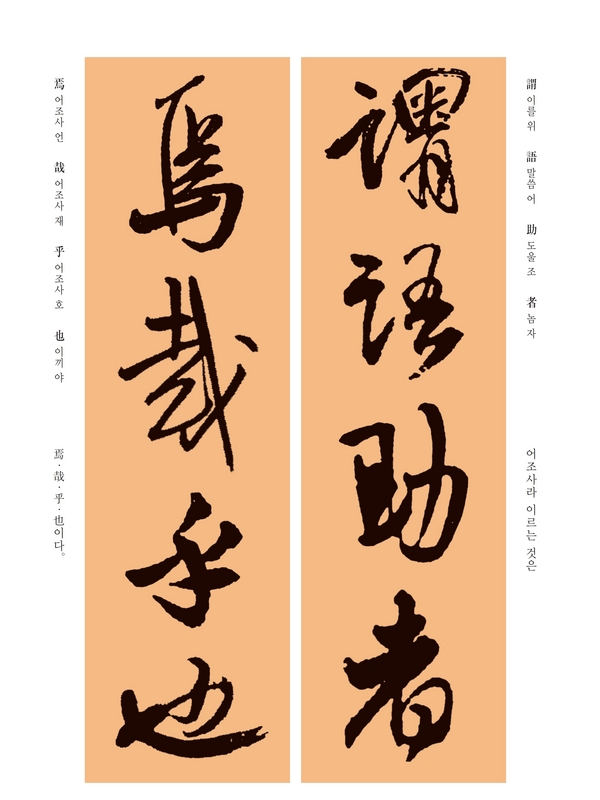 謂 이를 위 語 말씀 어 助 도울 조 者 놈 자
어조사라 이르는 것은
謂語助者
焉哉乎也
焉 어조사 언 哉 어조사 재 乎 어조사 호 也 이끼 야
焉·哉·乎·也이다.